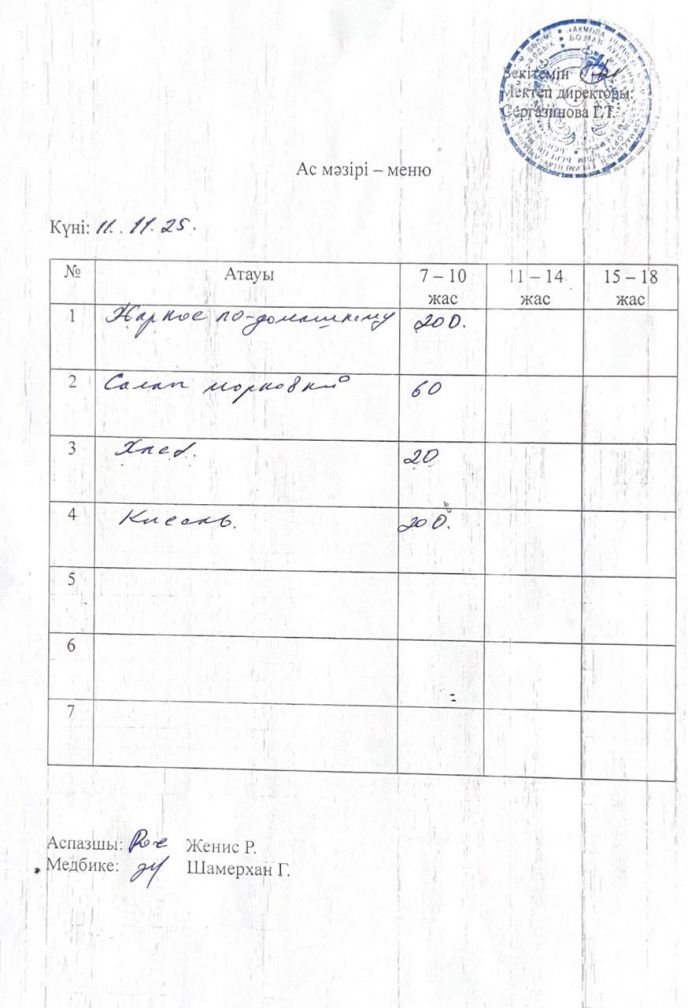 Бекітемін
Мектеп директоры:
Сергазинова Г.Т.
Ас мәзірі – меню
Күні: 11. 11. 25.
№ Атауы 7 – 10 жас 11 – 14 жас 15 – 18 жас
1 Жаркое по-домашнему 200.
2 Салат морковный 60
3 Хлеб. 20
4 Кисель. 200.
5
6
7
Аспазшы: Женис Р.
Медбике: Шамерхан Г.